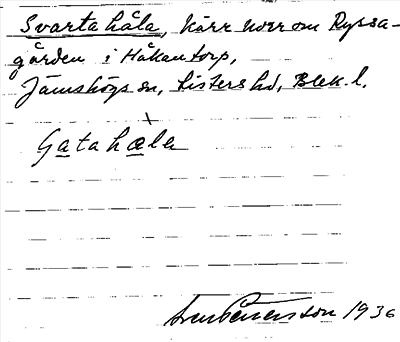 Svarta håla, kärr norr om Ryssa-
gården i Håkantorp,
Jämshögs sn, Listers hd, Blek. l.
Gatahæla
1936